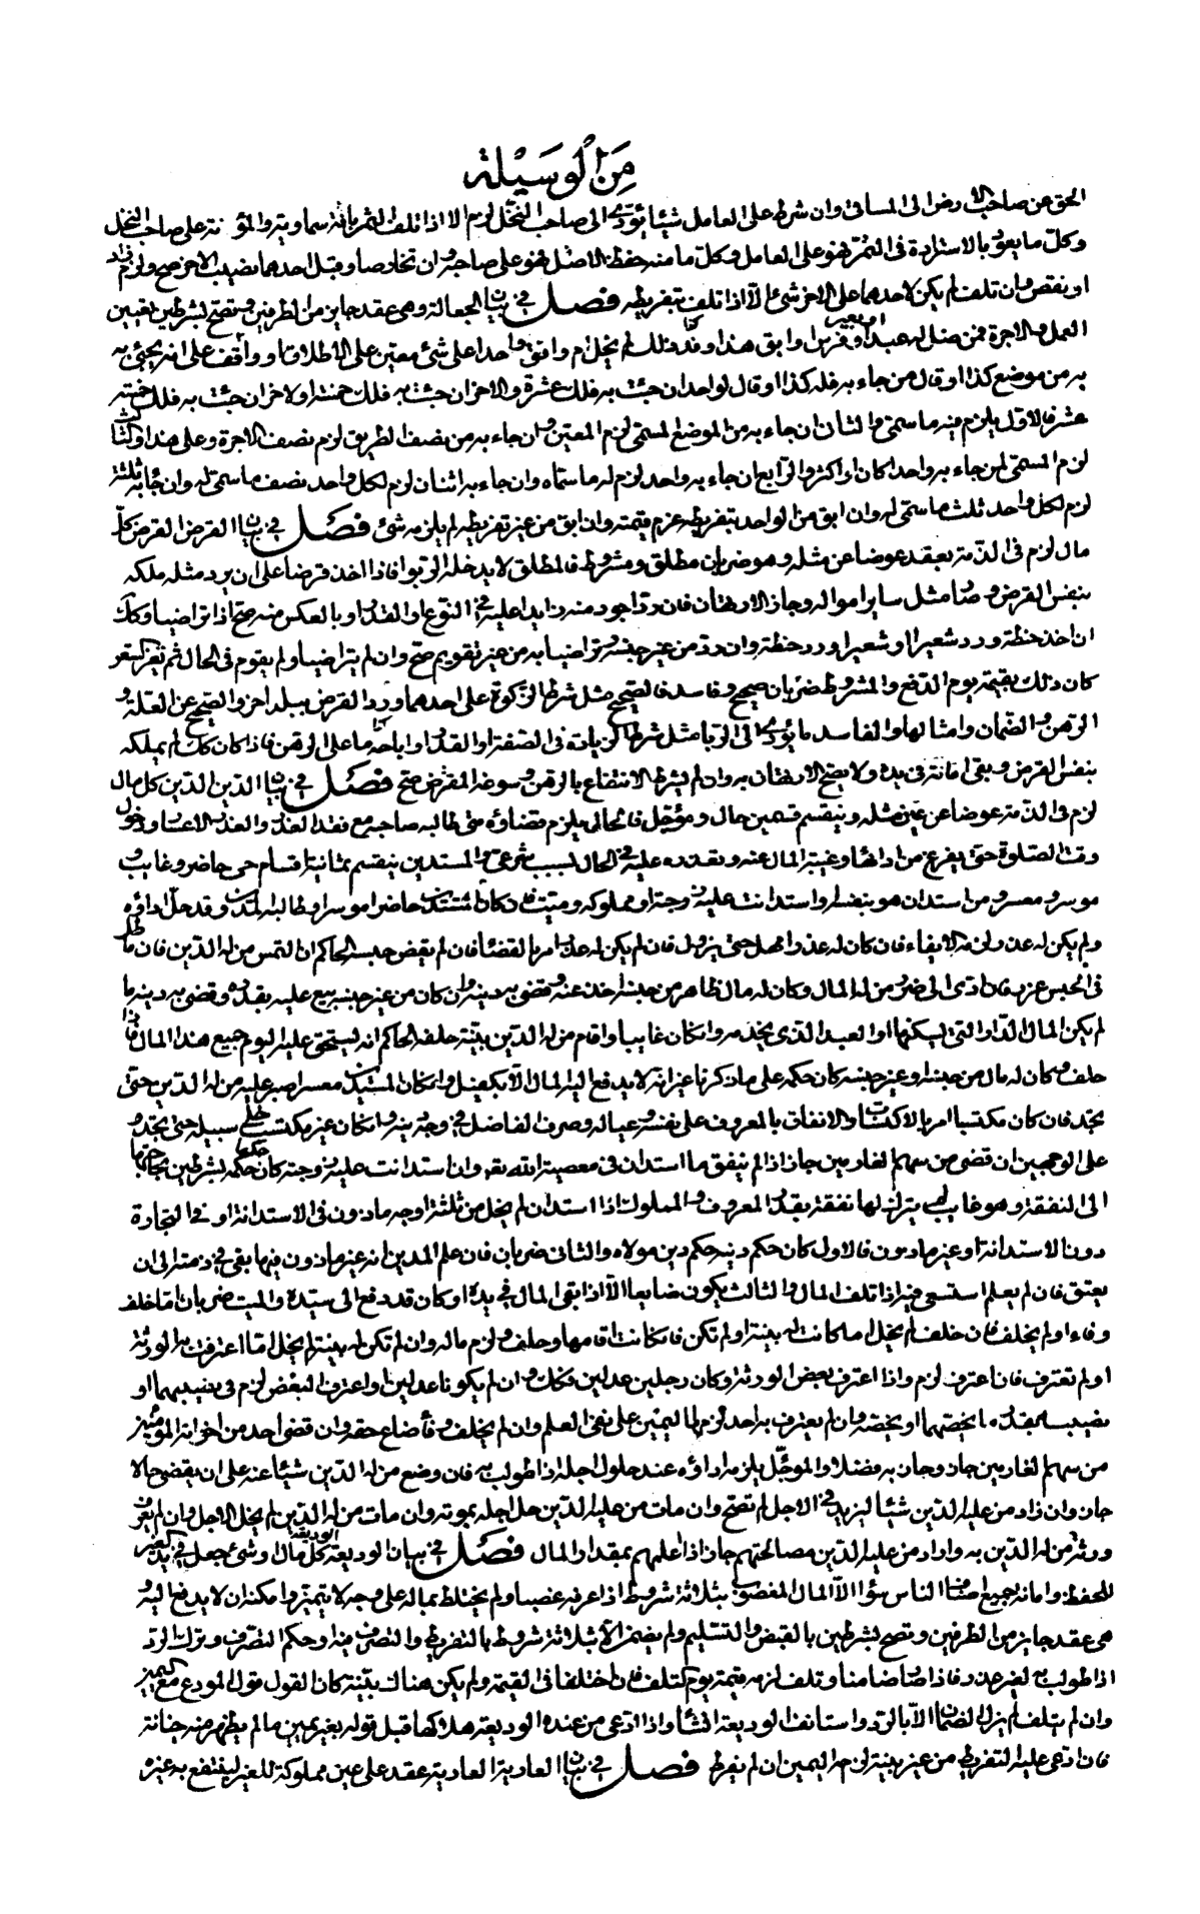 مِنَ الْوَسِيْلة
الحق عن صاحب الارض الى المساقى وان شرط على العامل شيئا يؤديه الى صاحب النخل لزم الا اذا تلف الثمر بآفة سماوية والمؤنة على صاحب النخل
وكل ما يعود بالاستزادة فى الثمر فهو على العامل وكل ما منه حفظ الاصل فهو على صاحبه وان تخارصا وقبل احدهما نصيب الاخر صح ولزم زاد
او نقص وان تلف لم يكن لاحدهما على الاخر شئ الا اذا تلف بتفريطه فصل فى بيان الجعالة وهى عقد جايز من الطرفين وتصح بشرطين تعيين
العمل والاجرة فمن ضل له عبد او بعير او فرس او ابق هذا وذلك لم يخل ام وافق واحدا على شئ معين على الاطلاق او وافق على انه يجيئ به
به من موضع كذا او قال من جاء به فله كذا او قال لواحد ان جئت به فلك عشرة والاخر ان جئت به فلك خمسة ولاخر ان جئت به فلك خمسة
عشر فالاول يلزم فيه ما سمى والثانى ان جاء به من الموضع المسمى لزم المعين وان جاء به من نصف الطريق لزم نصف الاجرة وعلى هذا والثالث
لزم المسمى لمن جاء به واحدا كان او اكثر والرابع ان جاء به واحد لزم له ما سماه وان جاء به اثنان لزم لكل واحد نصف ما سمى له وان جاء به ثلثة
لزم لكل واحد ثلث ما سمى له وان ابق من الواحد بتفريطه غرم قيمته وان ابق من غير تفريطه لم يلزمه شئ فصل فى بيان القرض القرض كل
مال لزم فى الذمة بعقد عوضا عن مثله وهو ضربان مطلق ومشروط فالمطلق لا يدخله الربوا فاذا اخذ قرضا على ان يرد مثله ملكه
بنفس القرض وصار مثل ساير امواله وجاز الارتهان فان رد اجود منه او زايدا عليه فى النوع او القدر او بالعكس منه صح اذا تراضيا وكذلك
ان اخذ حنطة ورد شعيرا او شعيرا ورد حنطة وان رد من غير جنسه وتراضيا به من غير تقويم صح وان لم يتراضيا ولم يقوم فى الحال ثم تغير السعر
كان ذلك بقيمته يوم الدفع والمشروط ضربان صحيح وفاسد فالصحيح مثل شرط الزكوة على احدهما ورد القرض ببلد اخر والصحيح عن الغلة و
الرهن والضمان وامثالها والفاسد ما يؤدى الى الربا مثل شرط الزيادة فى الصفة او القدر او اباحة ما على الرهن فاذا كان كذلك لم يملكه
بنفس القرض وبقى امانة فى يده ولا يصح الارتهان به وان لم يشرط الانتفاع بالرهن وسوغه المقرض صح فصل فى بيان الدين الدين كل مال
لزم فى الذمة عوضا عن غير مثله وينقسم قسمين حال ومؤجل فالحال يلزم قضاؤه متى طالبه صاحبه مع فقد العذر والعذر الاعسار ودخول
وقت الصلوة حتى يفرغ من ادائها وغيبة المال عنه وتعذره عليه فى الحال لسبب شرعى والمستدين ينقسم ثمانية اقسام حى حاضر وغايب و
موسر ومعسر ومن استدان هو بنفسه او استدانت عليه زوجته او مملوكه وميت فان كان المستدين حاضرا موسرا وطالبه المدين وقد حل اداؤه
ولم يكن له عذر لزمه الايفاء فان كان له عذر امهل حتى يزول فان لم يكن له عذر امر بالقضاء فان لم يقض حبسه الحاكم ان التمس من له الدين فان ماطل
فى الحبس عزر فان ادى الى ضرر من له المال وكان له مال ظاهر من جنسه اخذ عنه وقضى به دينه وان كان من غير جنسه بيع عليه بقدره وقضى به دينه ما
لم يكن المال الدار التى يسكنها او العبد الذى يخدمه وان كان غايبا واقام من له الدين بينة حلفه الحاكم انه يستحق عليه اليوم جميع هذا المال فاذا
حلف وكان له مال من جنسه او غير جنسه كان حكمه على ما ذكرنا غير انه لا يدفع اليه المال الا بكفيل وان كان المستدين معسرا صبر عليه من له الدين حتى
يجد فان كان مكتسبا امر بالاكتساب والانفاق بالمعروف على نفسه وعياله وصرف الفاضل فى وجه دينه وان كان غير مكتسب خلى سبيله حتى يجد و
على الوجهين ان قضى من سهم الغارمين جاز اذا لم ينفق ما استدان فى معصية الله تعه وان استدانت عليه زوجته كان حكمه حكمها بشرطين بحاجتها
الى النفقة وهو غايب لم يترك لها نفقة بقدر المعروف والمملوك اذا استدان لم يخل من ثلثة اوجه ماذون فى الاستدانة او فى التجارة
دون الاستدانة او غير ماذون فالاول كان حكم دينه حكم دين مولاه والثانى ضربان فان علم المدين انه غير ماذون فيها بقى فى ذمته الى ان
يعتق فان لم يعلم استسعى فيه اذا تلف المال والثالث يكون ضايعا الا اذا بقى المال فى يده او كان قد دفع الى سيده والميت ضربان اما خلف
وفاء او لم يخلف فان خلف لم يخل اما كانت له بينة او لم تكن فان كانت اقامها وحلف ولزم ماله وان لم تكن له بينة لم يخل اما اعترفت به الورثة
او لم تعترف فان اعترف لزم واذا اعترف بعض الورثة وكان رجلين عدلين فكذلك وان لم يكونا عدلين او اعترف البعض لزم فى نصيبهما او
نصيبه بمقدار ما يخصهما او يخصه وان لم يعترف به احد لزم لها اليمين على نفى العلم وان لم يخلف وفاء ضاع حقه وان قضى احد من اخوانه المؤمنين
من سهم الغارمين جاز وجاد به فضلا والموجل يلزمه اداؤه عند حلول اجله اذا طولب به فان وضع من له الدين شيئا عنه على ان يقضى حالا
جاز وان زاد من عليه الدين شيئا ليزيد فى الاجل لم تصح وان مات من عليه الدين حل اجله بموته وان مات من له الدين لم يحل الاجل وان لم يعرف
ورثة من له الدين به واراد من عليه الدين مصالحتهم جاز اذا اعلمهم بمقدار المال فصل فى بيان الوديعة الوديعة كل مال او شئ جعل فى يد الغير
للحفظ وامانه جميع اصناف الناس سؤاء الا المال المغصوب بثلاثة شروط اذا عرفه غصبا ولم يختلط بماله على وجه لا يتميز وامكنه ان لا يدفع اليه و
هى عقد جايز من الطرفين وتصح بشرطين بالقبض والتسليم ولم يضمن الا بثلاثة شروط بالتفريط والتصرف فيه او حكم التصرف وترك الرد
اذا طولب به لغير عذر فاذا صار ضامنا وتلف لزمه قيمته يوم التلف فان اختلفا فى القيمة ولم يكن هناك بينة كان القول قول المودع مع اليمين
وان لم يتلف لم يزل الضمان الا بالرد واستانف الوديعة انشاء واذا ادعى من عنده الوديعة هلاكها قبل قوله بغير يمين ما لم يظهر منه خيانة
فان ادعى عليه التفريط من غير بينة لزمه اليمين ان لم يفرط فصل فى بيان العارية العارية عقد على عين مملوكة للغير لينتفع به غيره